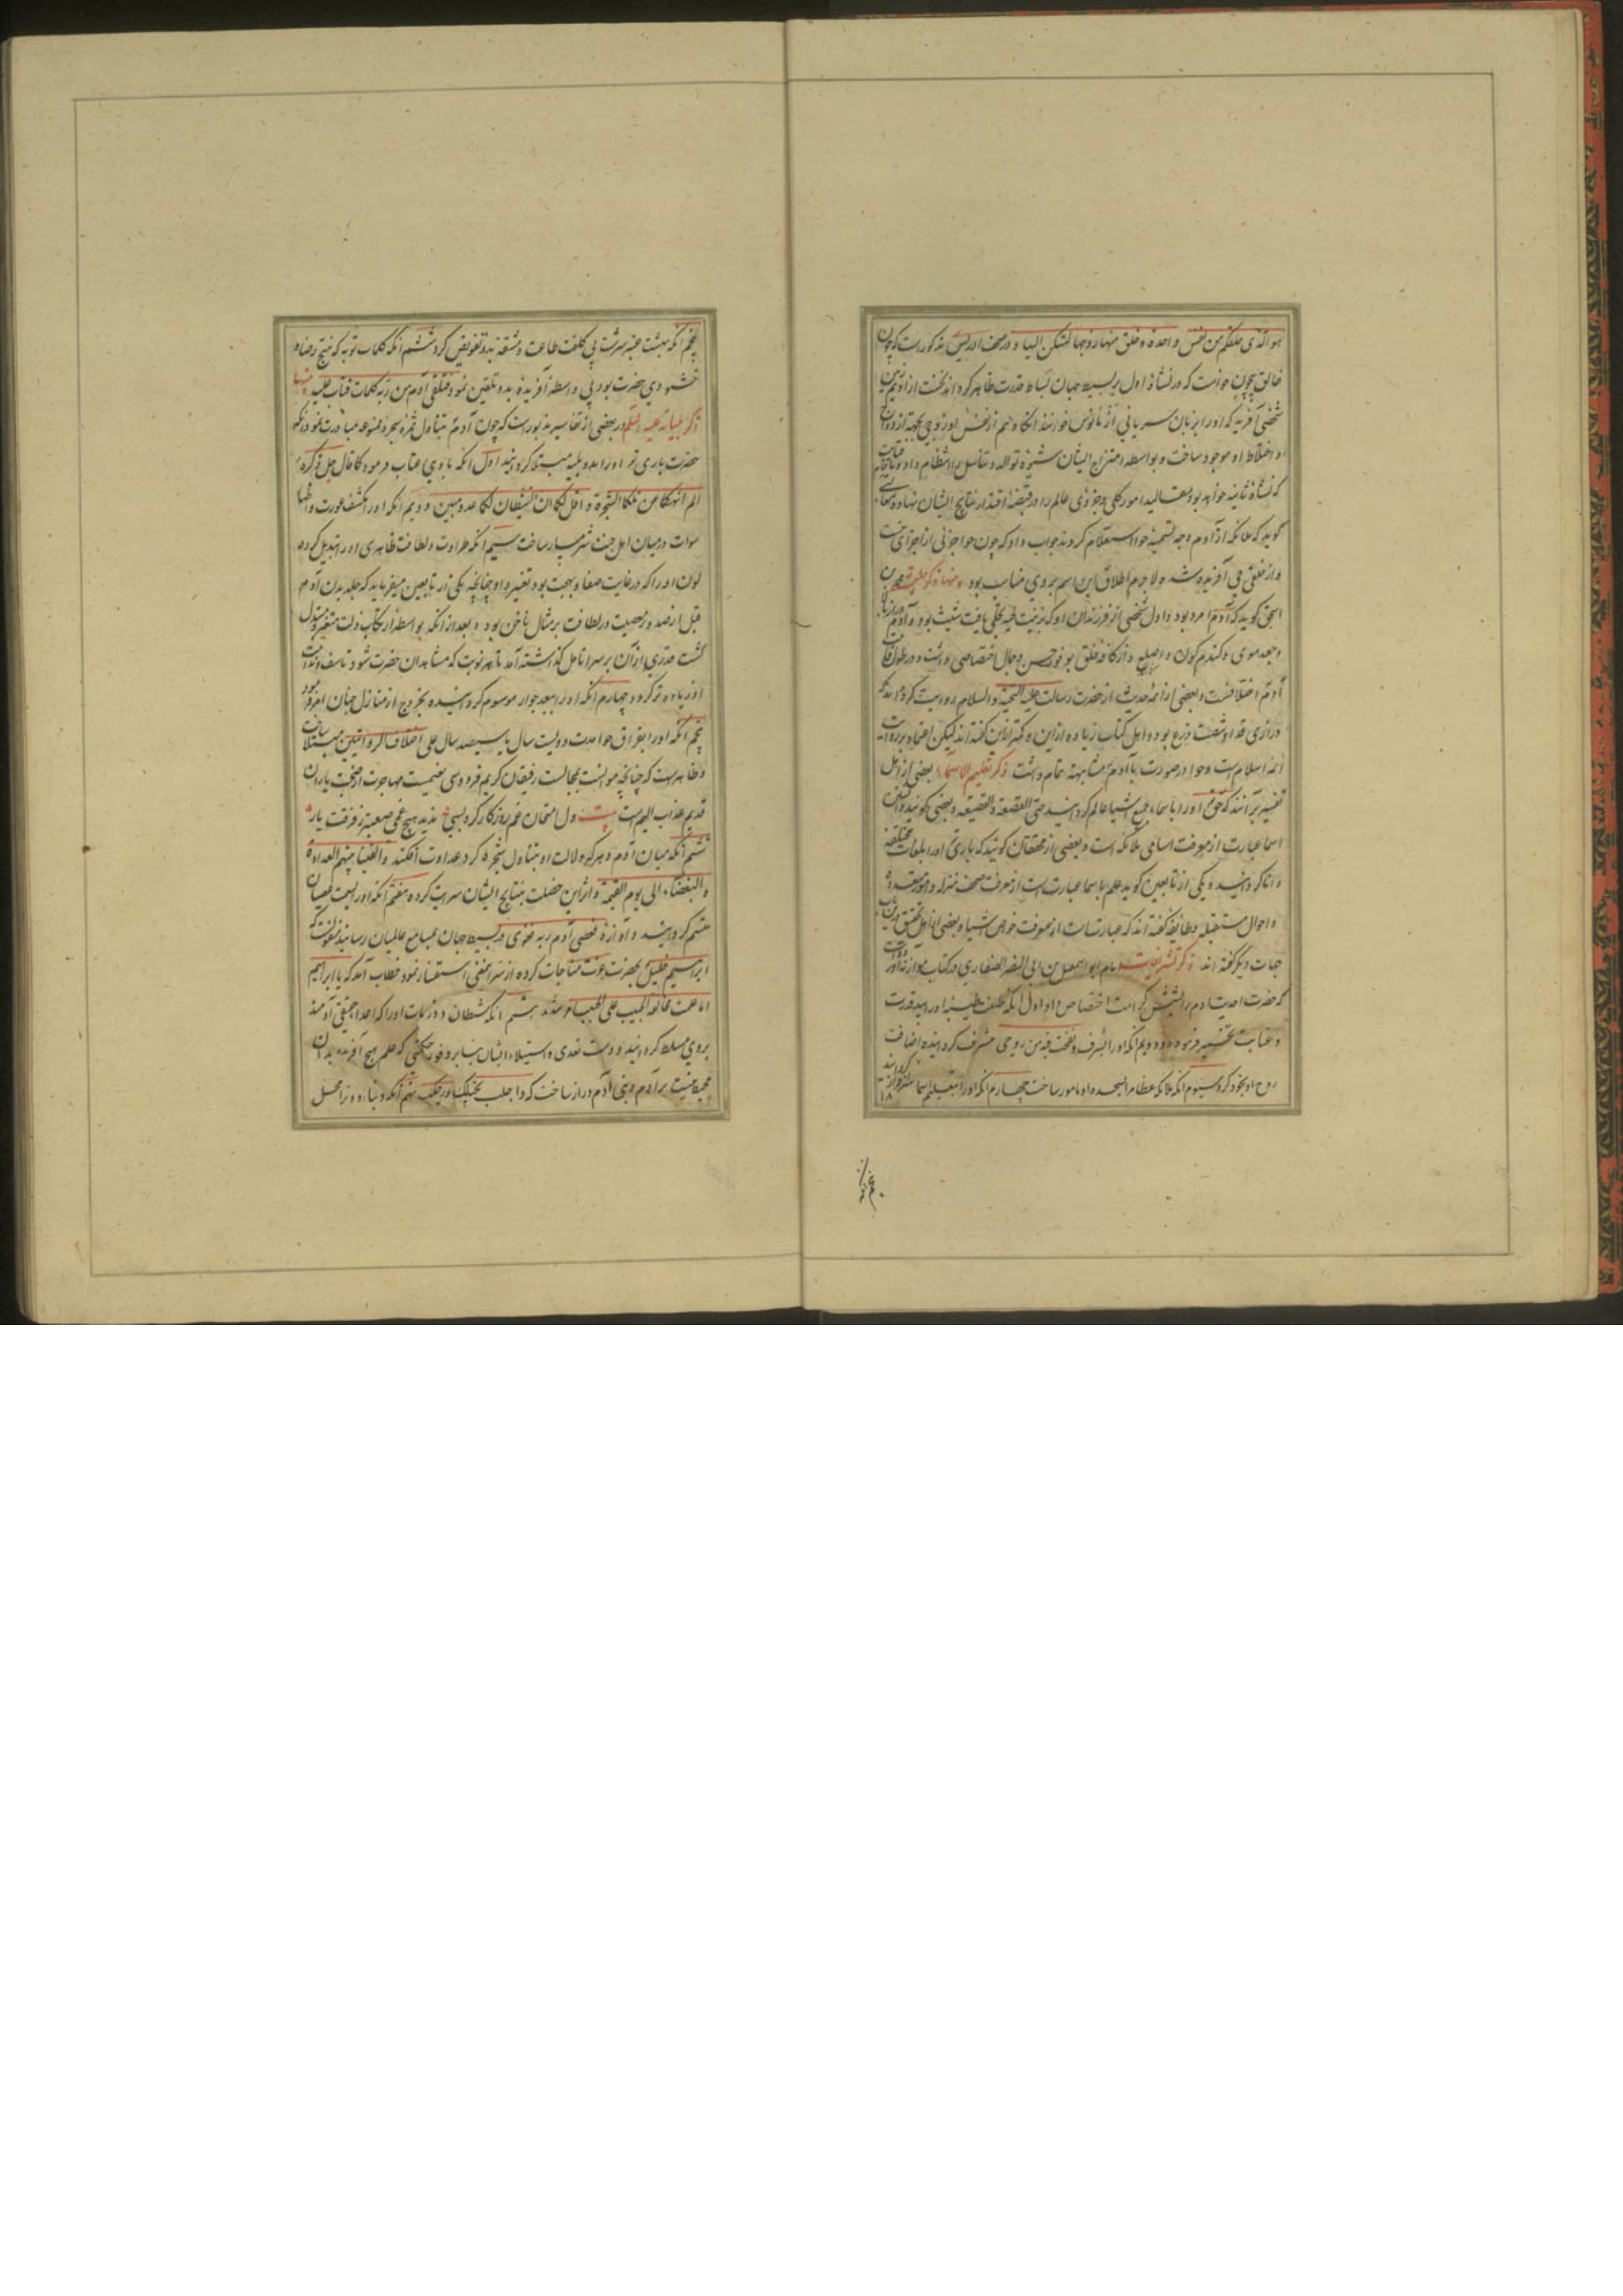 هو الذی خلقکم من نفس واحدة و خلق منها زوجها لتسکن الیها و در صحف ادریس مذکورست که چون
خالق بیچون خواست که در نشاة اول بر بسیط جهان بساط قدرت ظاهر کرداند نخست از ادیم زمین
شخصی آفرید که او را بزبان سریانی خوانند انکاه هم از نفس او زوجی بجهة ازدواج
و اختلاط او موجود ساخت و بواسطه امتزاج ایشان شیوه توالد و تناسل را انتظام داد و
که نشاة ثانیه خواهد بود مقالید امور کلی و جزوی عالم را در قبضه اقتدار نتایج ایشان نهاده
کویند که ملائکه از آدم وجه تسمیه حوا استعلام کردند جواب داد که چون حوا جزئی از اجزای
و از خلقی حی آفریده شده لاجرم اطلاق این اسم بروی مناسب بود و منها ذکر حلیته محمد بن
اسحق کوید که آدم امرد بود و اول شخصی از فرزندان او که بزینت لحیه محلی یافت شیث بود و آدم
و جعد موی و کندم کون و از کافه خلق بوفور حسن و جمال اختصاصی داشت و در طول قامت
آدم اختلافست و بعضی از ائمه حدیث از حضرت رسالت علیه التحیة والسلام روایت کرده اند که
درازی قد او شصت ذرع بود و اهل کتاب زیاده ازین و کمتر ازین کفته اند لیکن اعتماد بر روایت
ائمه اسلام است و حوا در صورت با آدم مشابهه تمام داشت ذکر تعلیم الاسماء بعضی از اهل
تفسیر برآنند که حق او را باسماء جمیع اشیا عالم کردانید حتی القصعة والقصیعه و بعضی کویند دانستن
اسما عبارت از معرفت اسامی ملائکه است و بعضی از محققان کویند که باری او را بلغات مختلفه
دانا کردانید و یکی از تابعین کوید علم باسما عبارت است از معرفت صحف منزله و امور
و احوال مستقبله و طایفه کفته اند که عبارتست از معرفت خواص اشیا و بعضی از اهل تحقیق درین باب
جهات دیکر کفته اند ذکر تشریفات امام ابو اسمعیل بن ابی النصر الصفاری در کتاب آورده
که حضرت احدیت آدم را بشش کرامت اختصاص داد اول انکه طینت طیبه او را بید قدرت
و عنایت تخمیر فرمود دویم انکه او را بشرف و نفخت فیه من روحی مشرف کردانیده اضافت
روح او بخود کرد سیوم انکه ملائکه عظام را بسجده او مامور ساخت چهارم انکه او را بتعلیم اسما سرافراز کردانید
۱۸
پنجم انکه بهشت عنبر سرشت بی کلفت طاعت و مشقت بدو تفویض کرد ششم انکه کلمات توبه که منتج رضا و
خشنودی حضرت بود بی واسطه آفریده بدو تلقین نمود فتلقی آدم من ربه کلمات فتاب علیه منها
ذکر بلیاته علیه السلم در بعضی از تفاسیر مذبورست که چون آدم بتناول ثمره شجره ممنوعه مبادرت نمود
حضرت باری تع او را بده بلیه مبتلا کردانید اول انکه با وی عتاب فرمود کما قال جل ذکره
الم انهکما عن تلکما الشجرة و اقل لکما ان الشیطان لکما عدو مبین دویم انکه او را بکشف عورت و اظهار
سوات در میان اهل جنت شرمسار ساخت سیم انکه طراوت و لطافت ظاهری او را تبدیل کرده
لون او را که در غایت صفا و بهجت بود تغییر داد چنانچه یکی از تابعین میفرماید که جلد بدن آدم
قبل از صدور معصیت در لطافت بر مثال ناخن بود و بعد از انکه بواسطه ارتکاب ذلت متغیر و متبدل
کشت قدری از آن بر سر انامل کذاشته آمد تا هر نوبت که مشاهد آن حضرت شود تاسف و ندامت
او زیاده تر کردد چهارم انکه او را ببعد جوار موسوم کردانیده بخروج از منازل جنان امر فرمود
پنجم انکه او را بفراق حوا مدت دویست سال یا سیصد سال علی اختلاف الروایتین مبتلا ساخت
و ظاهرست که چنانچه موانست بمجالست رفیقان کریم فردوسی نعیمست مهاجرت از صحبت یاران
قدیم عذاب الیم است بیت دل امتحان غم روزکار کرد بسی ندید هیچ غمی صعبتر ز فرقت یار
ششم انکه میان آدم و هر که دلالت او بتناول شجره کرد عداوت افکند و القینا بینهم العداوة
والبغضاء الی یوم القیمة و اثر این خصلت بنتایج ایشان سرایت کرده هفتم انکه او را بسمت عصیان
متسم کردانید و آوازه فعصی آدم ربه فغوی در بسیط جهان بمسامع عالمیان رسانید منقولست که
ابراهیم خلیل بحضرت عزت مناجات کرده از سر این معنی استفسار نمود خطاب آمد که یا ابراهیم
اما علمت مخالفة الحبیب علی الحبیب شدید هشتم انکه شیطان و ذریات او را که اعداء حقیقی آدمند
بروی مسلط کردانید و دست تعدی و استیلاء ایشان بنا بر وفور حکمتی که علم هیچ آفریده بدان
محیط نیست بر آدم و بنی آدم دراز ساخت که واجلب علیهم بخیلک و رجلک نهم انکه دنیا را